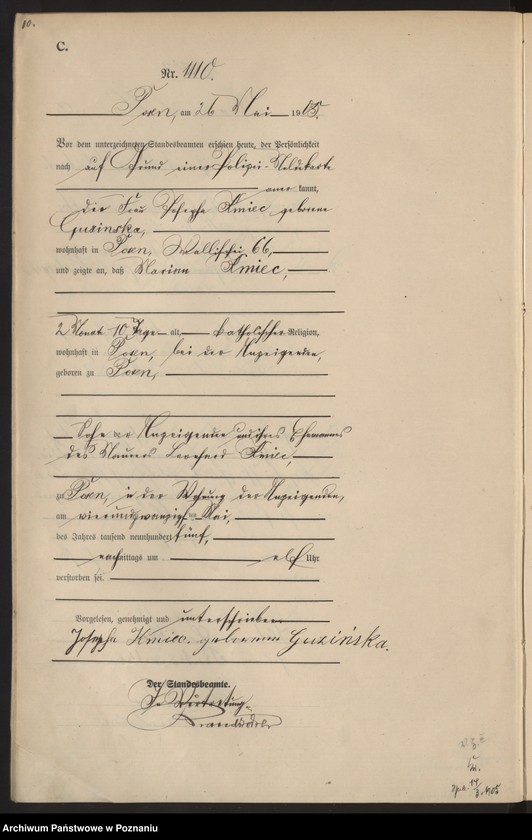 10.
C.
Nr. 1110.
Posen, am 26 Mai 1905.
Vor dem unterzeichneten Standesbeamten erschien heute, der Persönlichkeit
nach auf Grund einer Polizei-Meldekarte
aner kannt,
die Frau Josepha Kmiec geborene
Guzinska,
wohnhaft in Posen, Wallischei 66,
und zeigte an, daß Marian Kmiec,
2 Monat 10 Tage alt, katholischer Religion,
wohnhaft in Posen, bei der Anzeigenden,
geboren zu Posen,
Sohn der Anzeigenden und ihres Ehemannes
des Maurers Kmiec,
zu Posen, in der Wohnung der Anzeigenden,
am vierundzwanzigsten Mai,
des Jahres tausend neunhundert fünf,
nachmittags um elf Uhr
verstorben sei.
Vorgelesen, genehmigt und unterschrieben
Josepha Kmiec geborene Guzińska.
Der Standesbeamte.
In Vertretung.
Archiwum Państwowe w Poznaniu